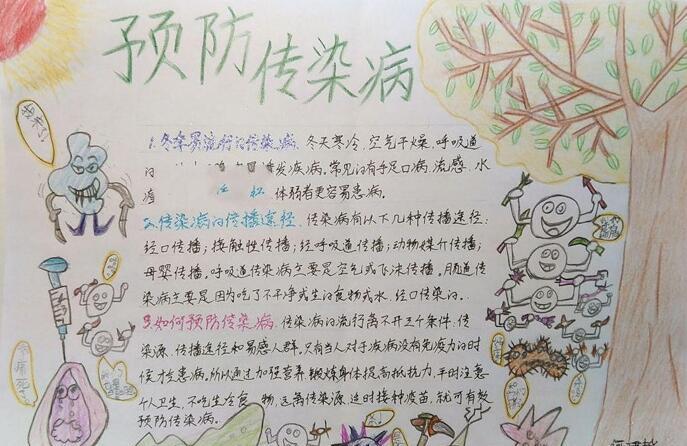 预防传染病
我来了!
1.冬季易流行的传染病、冬天寒冷,空气干燥,呼吸道
发疾病,常见的有手足口病,流感、水
体弱者更容易患病。
2.传染病的传播途径、传染病有以下几种传播途径:
经口传播;接触性传播;经呼吸道传播;动物媒介传播;
母婴传播。呼吸道传染病主要是空气或飞沫传播。肠道传
染病主要是因为吃了不干净或生的食物或水,经口传染的。
3.如何预防传染病、传染病的流行离不开三个条件、传
染源、传播途径和易感人群。只有当人对于疾病没有免疫力的时
候才会患病。所以通过加强营养,锻炼身体提高抵抗力,平时注意
个人卫生,不吃生冷食物,远离传染源,适时接种疫苗,就可有效
预防传染病。